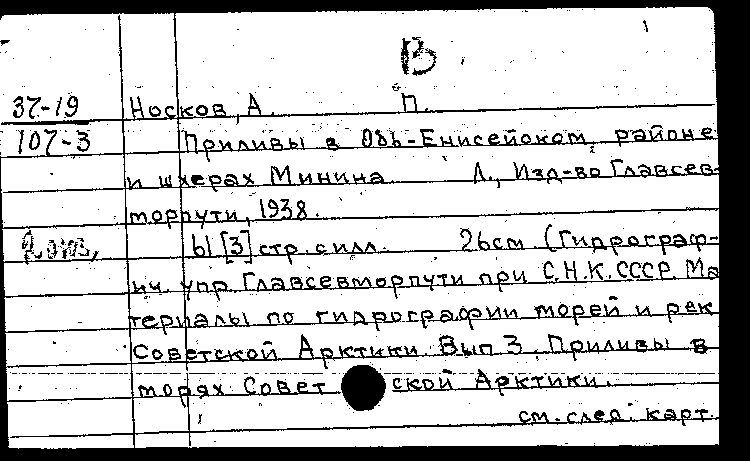 В
37-19 Носков, А. П.
107-3 Приливы в Обь-Енисейском районе
и шхерах Минина Л., Изд-во Главсев-
морпути, 1938.
61 [3] стр. с илл. 26см (Гидрограф-
ич. упр. Главсевморпути при С.Н.К. СССР. Ма
териалы по гидрографии морей и рек
Советской Арктики. Вып 3. Приливы в
морях Советской Арктики.
см. след. карт.